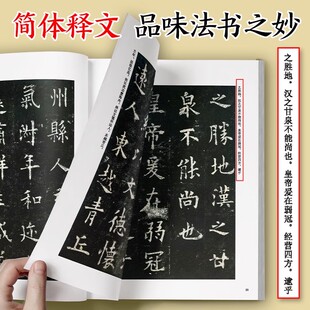 简体释文 品味法书之妙
之胜地，汉之甘泉不能尚也。皇帝爰在弱冠，经营四方，逮乎
之勝地漢之甘
泉不能尚也
皇帝爰在弱冠
德懷
遠人東越青丘
州縣人
氣淑年和